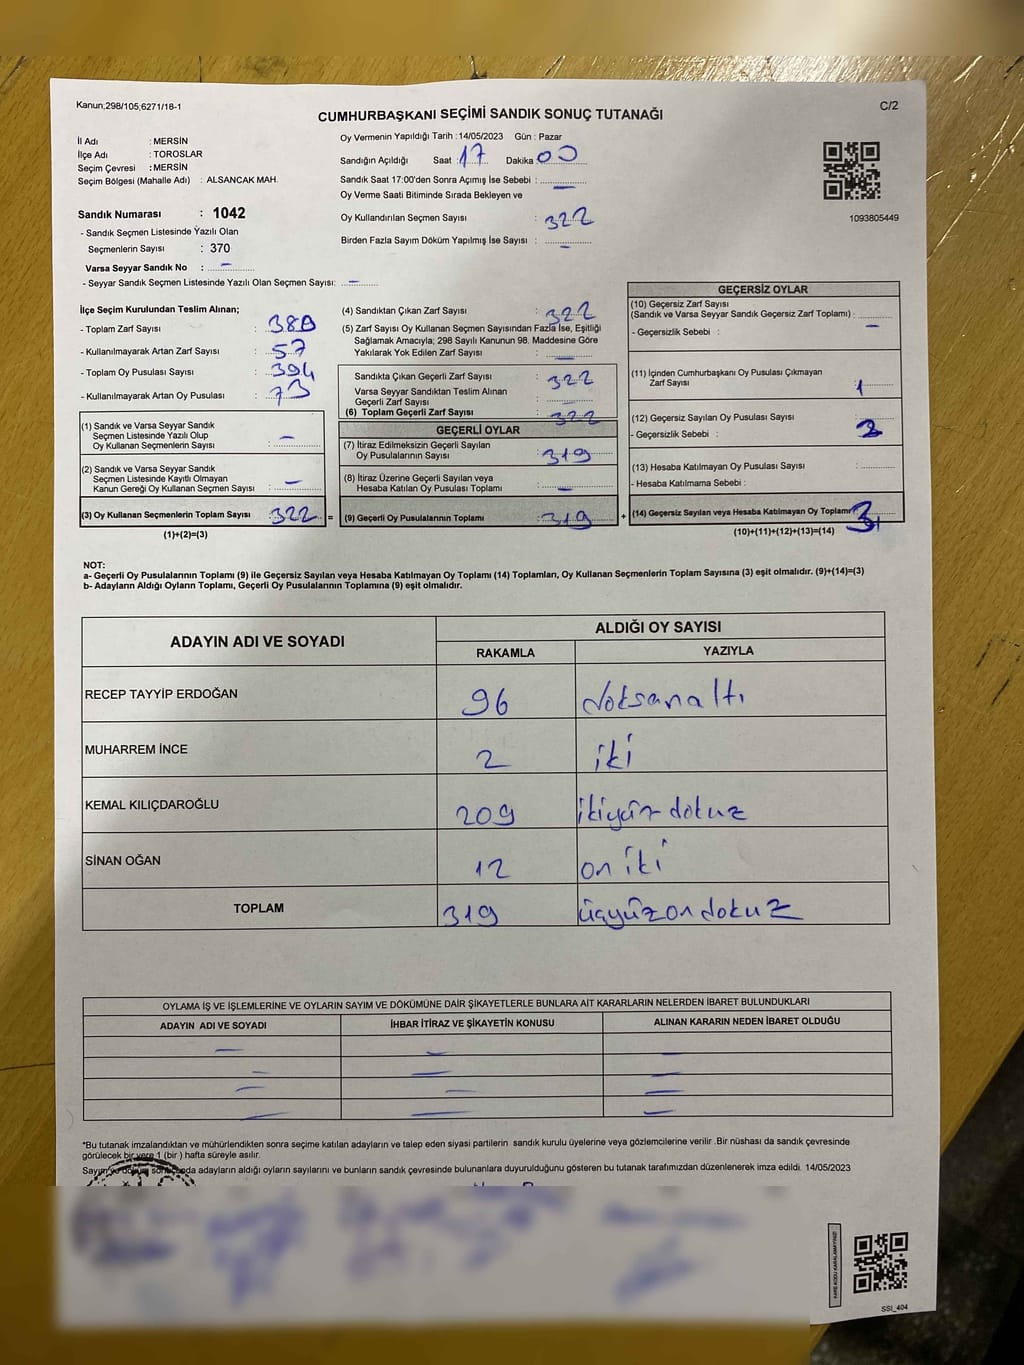 Kanun;298/105;6271/18-1
C/2
CUMHURBAŞKANI SEÇİMİ SANDIK SONUÇ TUTANAĞI
İl Adı : MERSİN
İlçe Adı : TOROSLAR
Seçim Çevresi : MERSİN
Seçim Bölgesi (Mahalle Adı) : ALSANCAK MAH.
Sandık Numarası : 1042
- Sandık Seçmen Listesinde Yazılı Olan
Seçmenlerin Sayısı : 370
Varsa Seyyar Sandık No : –
- Seyyar Sandık Seçmen Listesinde Yazılı Olan Seçmen Sayısı: –
Oy Vermenin Yapıldığı Tarih :14/05/2023 Gün : Pazar
Sandığın Açıldığı Saat :17 Dakika 00
Sandık Saat 17:00'den Sonra Açımış İse Sebebi : –
Oy Verme Saati Bitiminde Sırada Bekleyen ve
Oy Kullandırılan Seçmen Sayısı : 322
Birden Fazla Sayım Döküm Yapılmış İse Sayısı : –
1093805449
İlçe Seçim Kurulundan Teslim Alınan;
- Toplam Zarf Sayısı : 380
- Kullanılmayarak Artan Zarf Sayısı : 57
- Toplam Oy Pusulası Sayısı : 394
- Kullanılmayarak Artan Oy Pusulası : 73
(1) Sandık ve Varsa Seyyar Sandık
Seçmen Listesinde Yazılı Olup
Oy Kullanan Seçmenlerin Sayısı : –
(2) Sandık ve Varsa Seyyar Sandık
Seçmen Listesinde Kayıtlı Olmayan
Kanun Gereği Oy Kullanan Seçmen Sayısı : –
(3) Oy Kullanan Seçmenlerin Toplam Sayısı : 322 =
(1)+(2)=(3)
(4) Sandıktan Çıkan Zarf Sayısı : 322
(5) Zarf Sayısı Oy Kullanan Seçmen Sayısından Fazla İse, Eşitliği
Sağlamak Amacıyla; 298 Sayılı Kanunun 98. Maddesine Göre
Yakılarak Yok Edilen Zarf Sayısı : –
Sandıkta Çıkan Geçerli Zarf Sayısı : 322
Varsa Seyyar Sandıktan Teslim Alınan
Geçerli Zarf Sayısı :
(6) Toplam Geçerli Zarf Sayısı : 322
GEÇERLİ OYLAR
(7) İtiraz Edilmeksizin Geçerli Sayılan
Oy Pusulalarının Sayısı : 319
(8) İtiraz Üzerine Geçerli Sayılan veya
Hesaba Katılan Oy Pusulası Toplamı : –
(9) Geçerli Oy Pusulalarının Toplamı : 319 +
GEÇERSİZ OYLAR
(10) Geçersiz Zarf Sayısı
(Sandık ve Varsa Seyyar Sandık Geçersiz Zarf Toplamı) :
- Geçersizlik Sebebi : –
(11) İçinden Cumhurbaşkanı Oy Pusulası Çıkmayan
Zarf Sayısı : 1
(12) Geçersiz Sayılan Oy Pusulası Sayısı :
- Geçersizlik Sebebi :
(13) Hesaba Katılmayan Oy Pusulası Sayısı :
- Hesaba Katılmama Sebebi :
(14) Geçersiz Sayılan veya Hesaba Katılmayan Oy Toplamı : 3
(10)+(11)+(12)+(13)=(14)
NOT:
a- Geçerli Oy Pusulalarının Toplamı (9) ile Geçersiz Sayılan veya Hesaba Katılmayan Oy Toplamı (14) Toplamları, Oy Kullanan Seçmenlerin Toplam Sayısına (3) eşit olmalıdır. (9)+(14)=(3)
b- Adayların Aldığı Oyların Toplamı, Geçerli Oy Pusulalarının Toplamına (9) eşit olmalıdır.
ADAYIN ADI VE SOYADI
ALDIĞI OY SAYISI
RAKAMLA YAZIYLA
RECEP TAYYİP ERDOĞAN 96 doksanaltı
MUHARREM İNCE 2 iki
KEMAL KILIÇDAROĞLU 209 ikiyüz dokuz
SİNAN OĞAN 12 on iki
TOPLAM 319 üçyüzondokuz
OYLAMA İŞ VE İŞLEMLERİNE VE OYLARIN SAYIM VE DÖKÜMÜNE DAİR ŞİKAYETLERLE BUNLARA AİT KARARLARIN NELERDEN İBARET BULUNDUKLARI
ADAYIN ADI VE SOYADI İHBAR İTİRAZ VE ŞİKAYETİN KONUSU ALINAN KARARIN NEDEN İBARET OLDUĞU
– – –
– – –
– – –
– – –
*Bu tutanak imzalandıktan ve mühürlendikten sonra seçime katılan adayların ve talep eden siyasi partilerin sandık kurulu üyelerine veya gözlemcilerine verilir .Bir nüshası da sandık çevresinde
görülecek bir yere 1 (bir ) hafta süreyle asılır.
Sayım ve döküm sonucunda adayların aldığı oyların sayılarını ve bunların sandık çevresinde bulunanlara duyurulduğunu gösteren bu tutanak tarafımızdan düzenlenerek imza edildi. 14/05/2023
KARE KODU KARALAMAYINIZ!
SSI_404